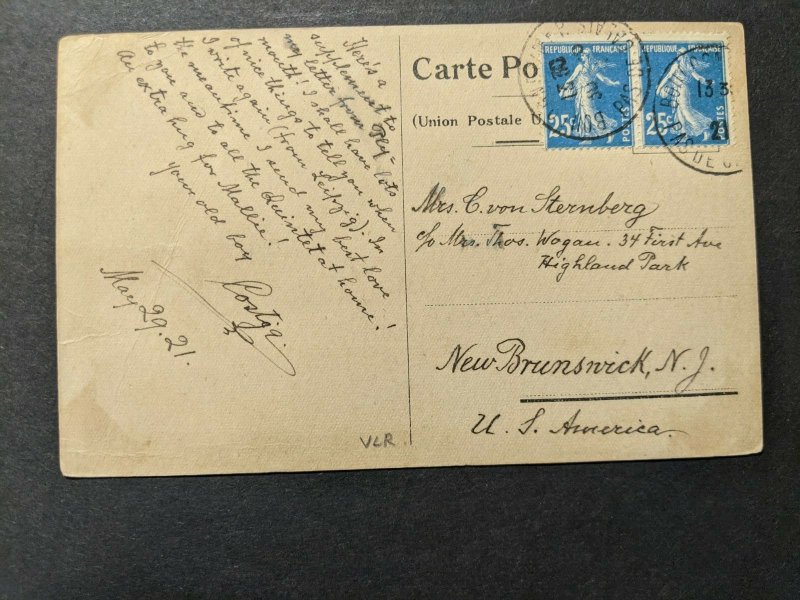 Here's a
supplement to
my letter from Ply-
mouth! I shall have lots
of nice things to tell you when
I write again (from Leipzig). In
the meantime I send my best love
to you and to all the Quintet at home!
An extra hug for Mallie!
your old boy
Costja.
May 29. 21.
VLR
Carte Po
(Union Postale U
REPUBLIQUE FRANÇAISE
25c POSTES
REPUBLIQUE FRANÇAISE
25c POSTES
PAS DE
13
21
Mrs. C. von Sternberg
c/o Mrs. Thos. Wogan. 34 First Ave
Highland Park
New Brunswick, N. J.
U. S. America.